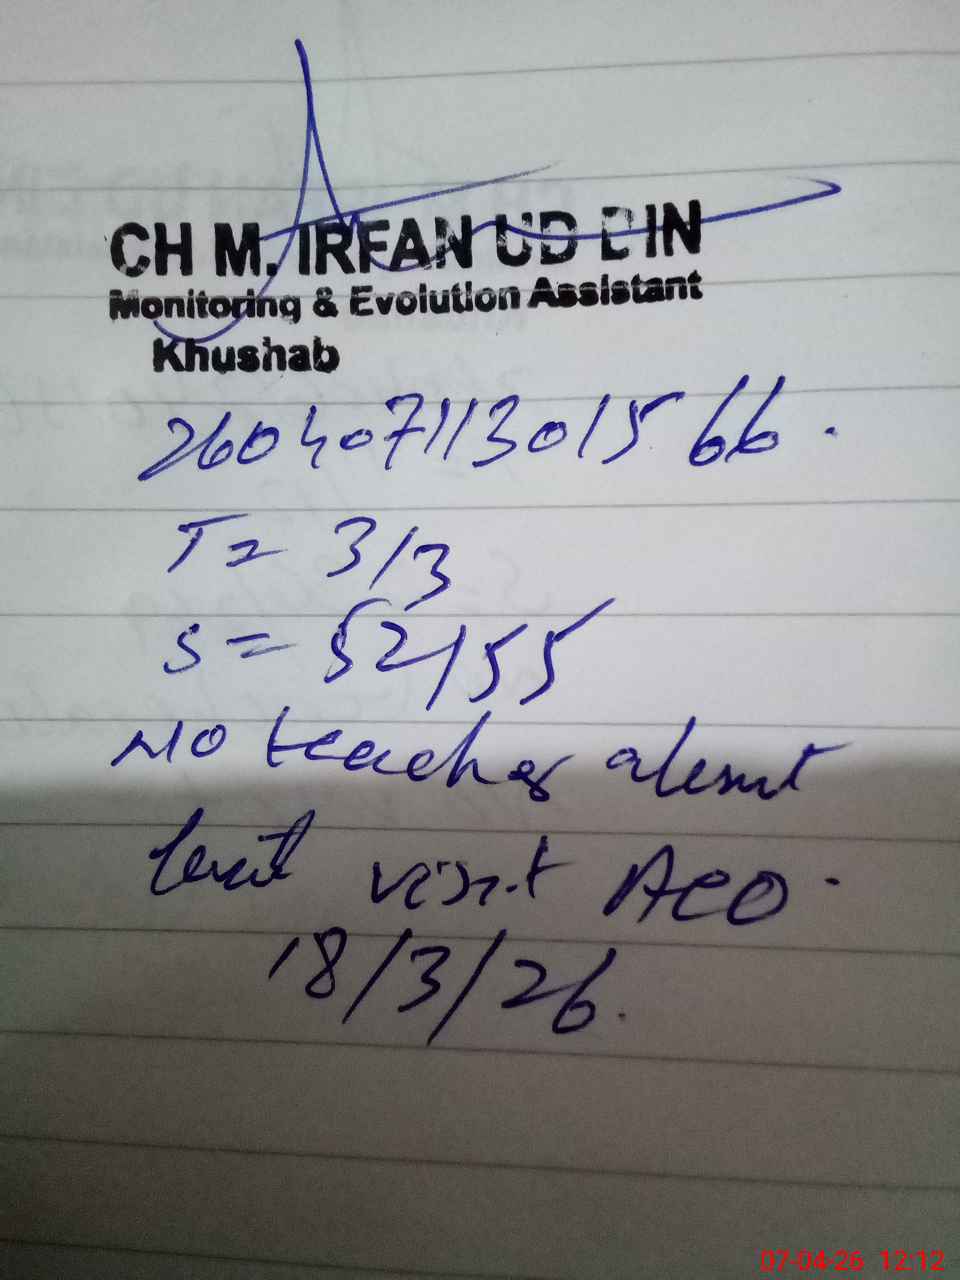 CH M. IRFAN UD DIN
Monitoring & Evolution Assistant
Khushab
26040711301566.
T= 3/3
S= 52/55
No teacher absent
last visit AEO.
18/3/26.
07-04-26 12:12